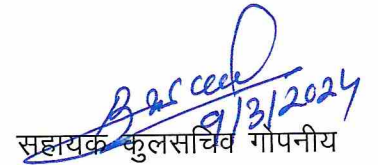 9/3/2024
सहायक कुलसचिव गोपनीय